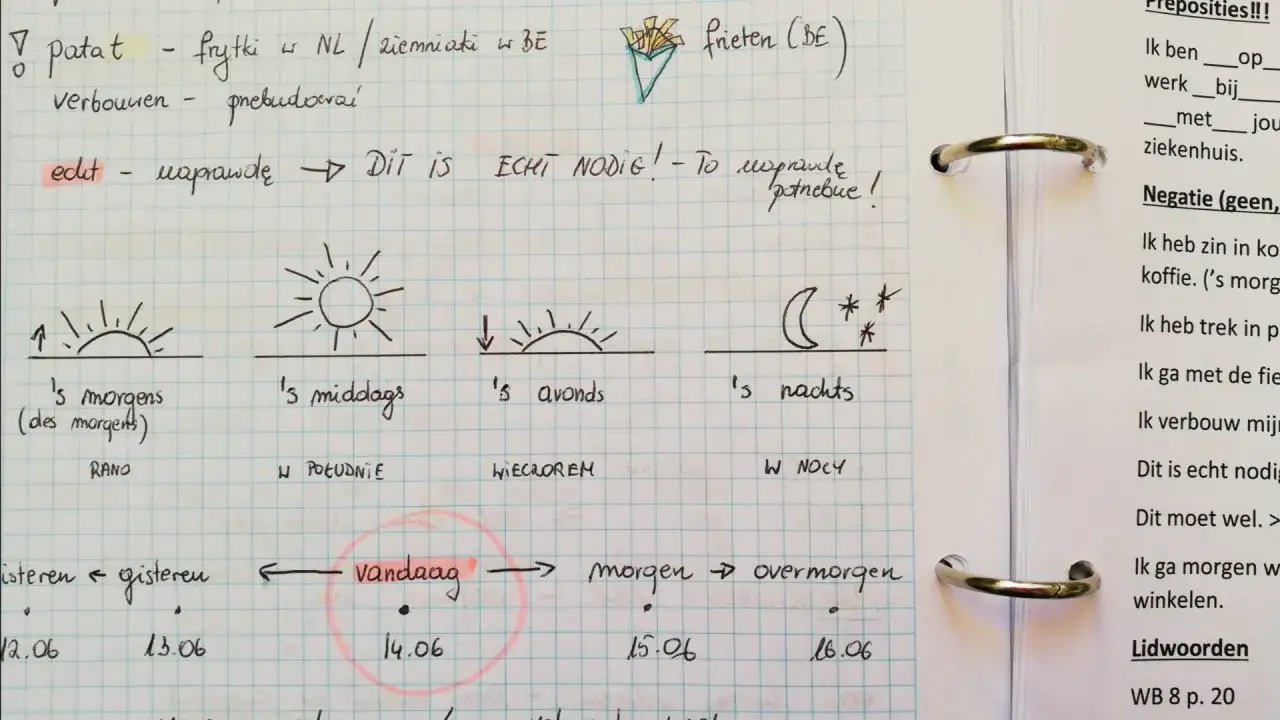 ! patat - frytki w NL / ziemniaki w BE
frieten (BE)
verbouwen - przebudować
echt - naprawdę → DIT IS ECHT NODIG! - To naprawdę
potrzebne!
's morgens
(des morgens)
RANO
's middags
W POŁUDNIE
's avonds
WIECZOREM
's nachts
W NOCY
isteren ← gisteren ← vandaag → morgen → overmorgen
12.06 13.06 14.06 15.06 16.06
Preposities!!!
Ik ben ___op_
werk __bij____
___met___ jou
ziekenhuis.
Negatie (geen,
Ik heb zin in ko
koffie. ('s morg
Ik heb trek in p
Ik ga met de fie
Ik verbouw mij
Dit is echt nodig
Dit moet wel. >
Ik ga morgen w
winkelen.
Lidwoorden
WB 8 p. 20